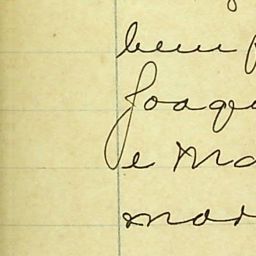 bem
Joaqu
e Ma
mor